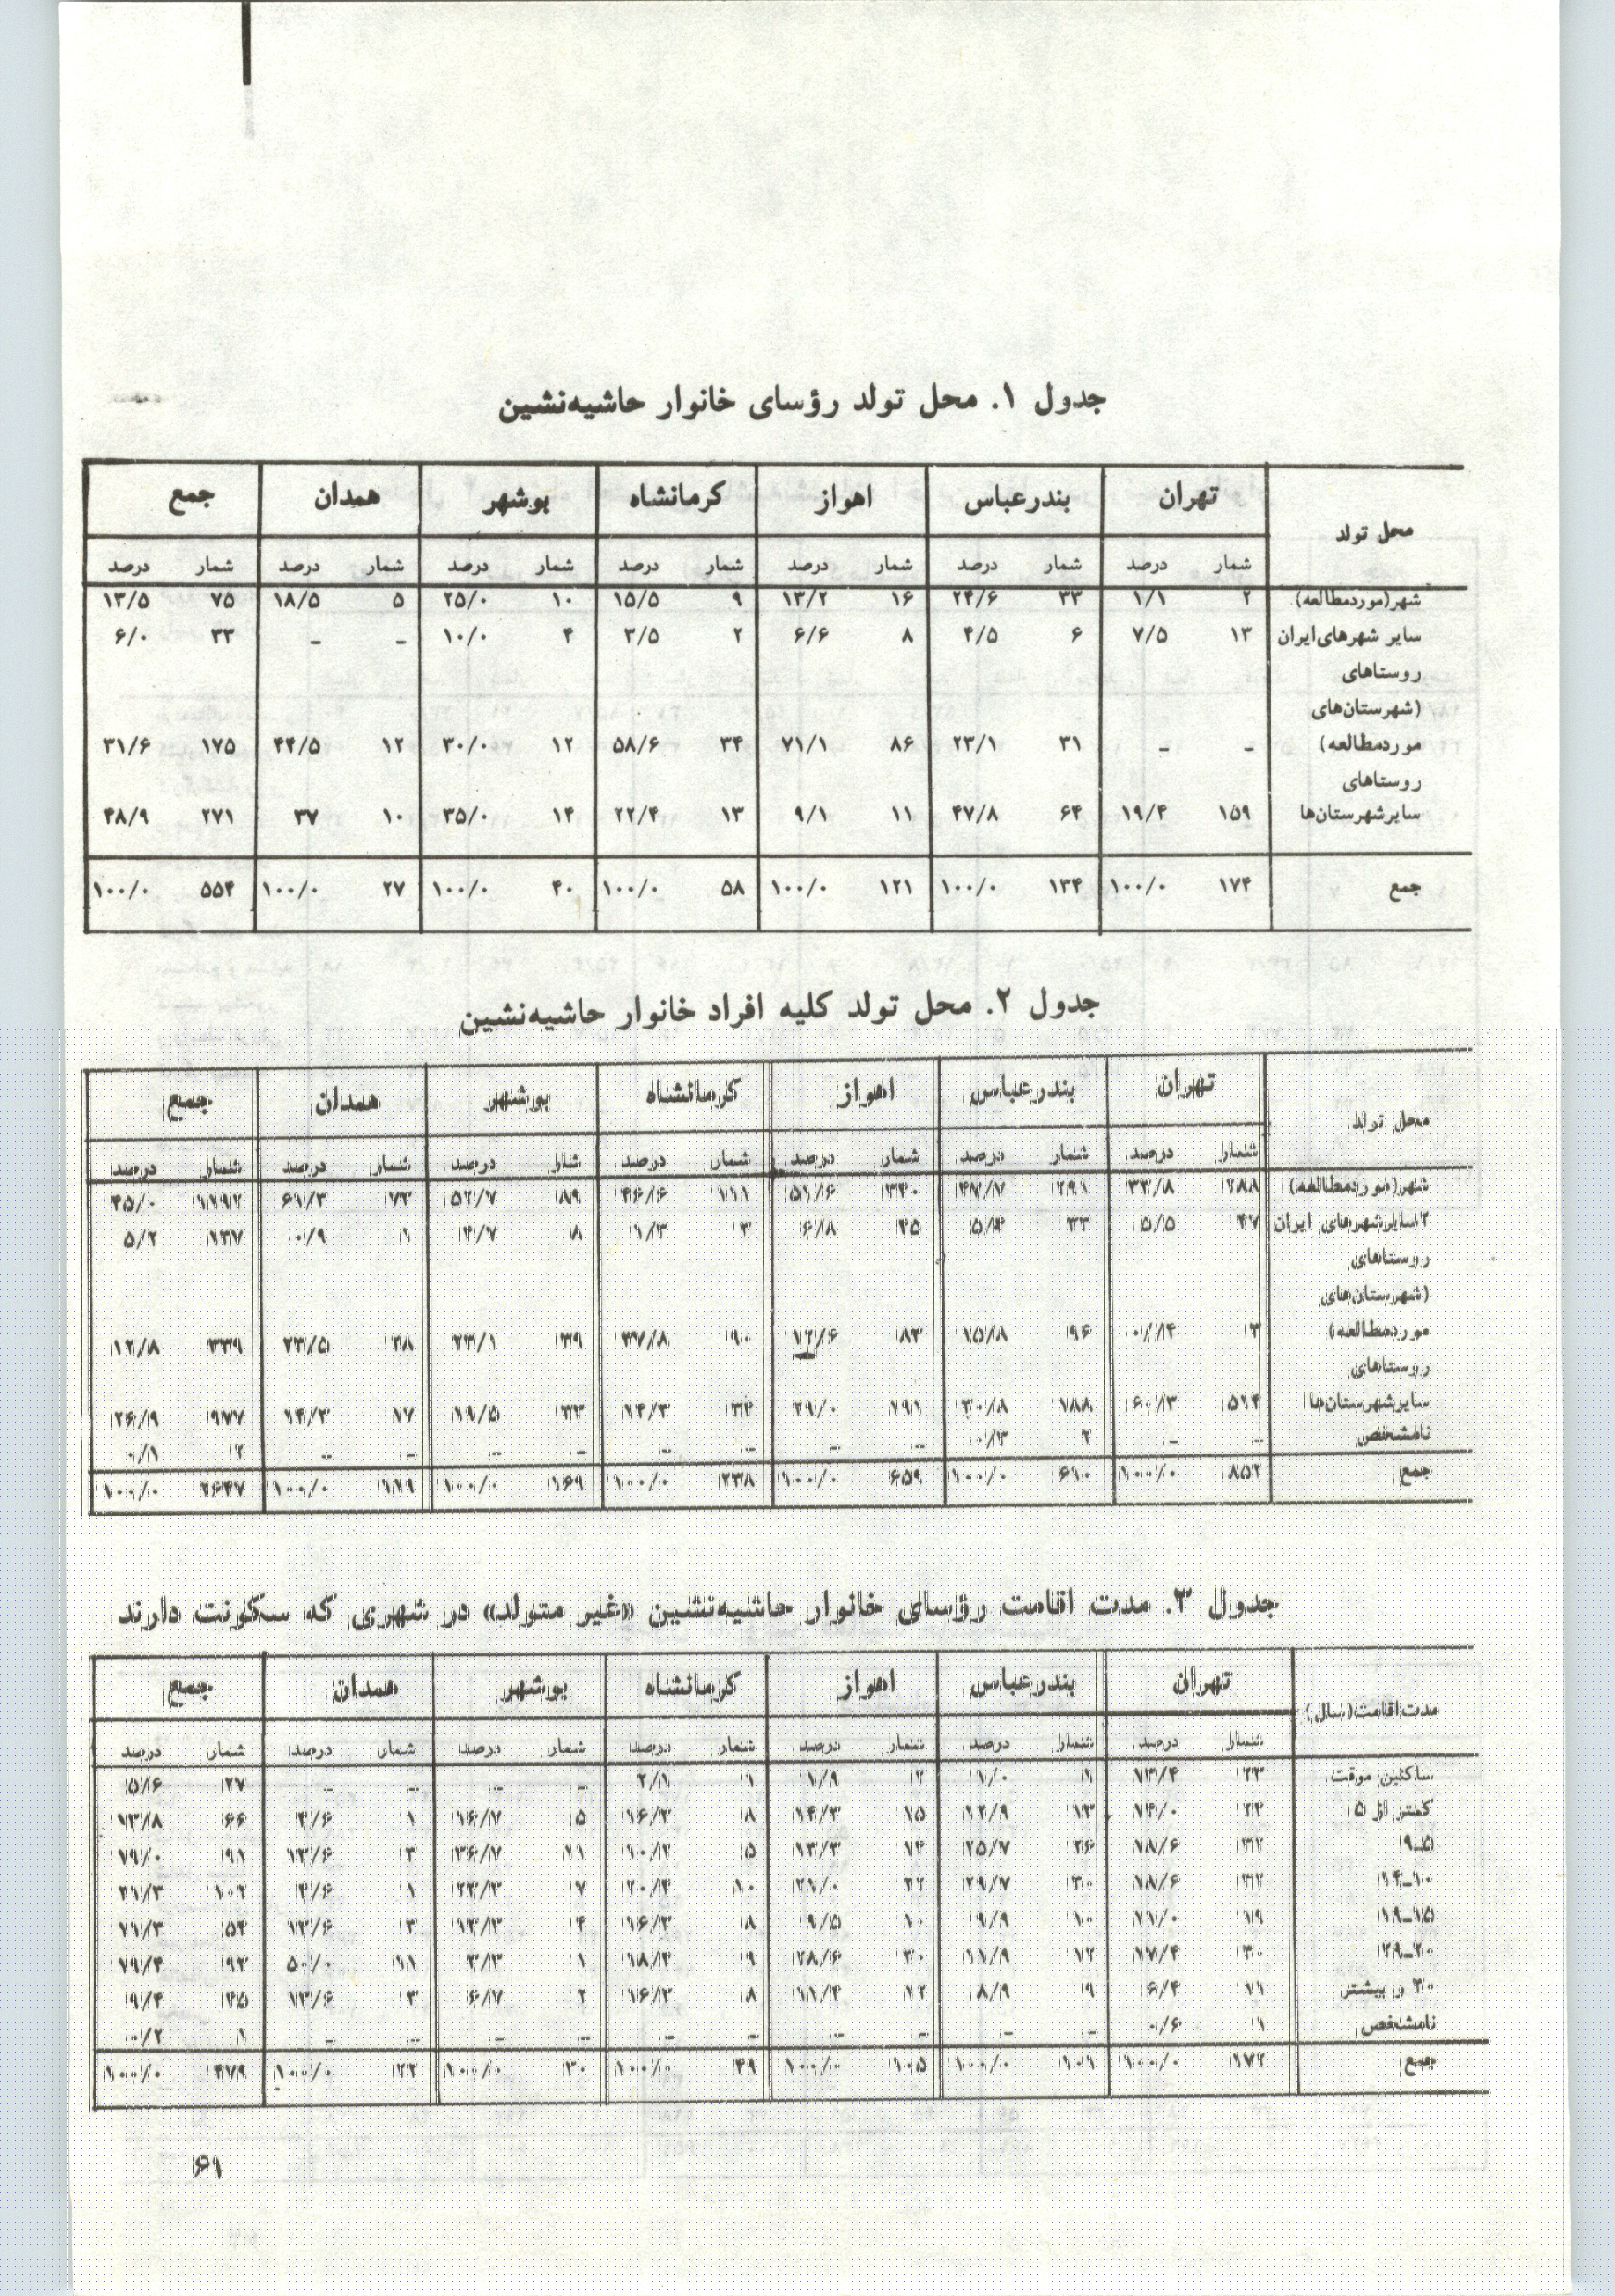 جدول ۱. محل تولد رؤسای خانوار حاشیه‌نشین
محل تولد تهران بندرعباس اهواز کرمانشاه بوشهر همدان جمع
شمار درصد شمار درصد شمار درصد شمار درصد شمار درصد شمار درصد شمار درصد
شهر(موردمطالعه) ۲ ۱/۱ ۳۳ ۲۴/۶ ۱۶ ۱۳/۲ ۹ ۱۵/۵ ۱۰ ۲۵/۰ ۵ ۱۸/۵ ۷۵ ۱۳/۵
سایر شهرهای‌ایران ۱۳ ۷/۵ ۶ ۴/۵ ۸ ۶/۶ ۲ ۳/۵ ۴ ۱۰/۰ – – ۳۳ ۶/۰
روستاهای
(شهرستان‌های
موردمطالعه) – – ۳۱ ۲۳/۱ ۸۶ ۷۱/۱ ۳۴ ۵۸/۶ ۱۲ ۳۰/۰ ۱۲ ۴۴/۵ ۱۷۵ ۳۱/۶
روستاهای
سایرشهرستان‌ها ۱۵۹ ۱۹/۴ ۶۴ ۴۷/۸ ۱۱ ۹/۱ ۱۳ ۲۲/۴ ۱۴ ۳۵/۰ ۱۰ ۳۷ ۲۷۱ ۴۸/۹
جمع ۱۷۴ ۱۰۰/۰ ۱۳۴ ۱۰۰/۰ ۱۲۱ ۱۰۰/۰ ۵۸ ۱۰۰/۰ ۴۰ ۱۰۰/۰ ۲۷ ۱۰۰/۰ ۵۵۴ ۱۰۰/۰
جدول ۲. محل تولد کلیه افراد خانوار حاشیه‌نشین
محل تولد تهران بندرعباس اهواز کرمانشاه بوشهر همدان جمع
شمار درصد شمار درصد شمار درصد شمار درصد شمار درصد شمار درصد
شهر(موردمطالعه) ۲۸۸ ۳۳/۸ ۲۹۱ ۴۷/۷ ۳۴۰ ۵۱/۶ ۱۱۱ ۴۶/۶ ۸۹ ۵۲/۷ ۷۳ ۶۱/۳ ۱۱۹۲ ۴۵/۰
سایرشهرهای ایران ۴۷ ۵/۵ ۳۳ ۵/۴ ۴۵ ۶/۸ ۳ ۱/۳ ۸ ۴/۷ ۱ ۰/۹ ۱۳۷ ۵/۲
روستاهای
(شهرستان‌های
موردمطالعه) ۳ ۰/۴ ۹۶ ۱۵/۸ ۸۳ ۱۲/۶ ۹۰ ۳۷/۸ ۳۹ ۲۳/۱ ۲۸ ۲۳/۵ ۳۳۹ ۱۲/۸
روستاهای
سایرشهرستان‌ها ۵۱۴ ۶۰/۳ ۱۸۸ ۳۰/۸ ۱۹۱ ۲۹/۰ ۳۴ ۱۴/۳ ۳۳ ۱۹/۵ ۱۷ ۱۴/۳ ۹۷۷ ۳۶/۹
نامشخص – – ۲ ۰/۳ – – – – – – – – ۲ ۰/۱
جمع ۸۵۲ ۱۰۰/۰ ۶۱۰ ۱۰۰/۰ ۶۵۹ ۱۰۰/۰ ۲۳۸ ۱۰۰/۰ ۱۶۹ ۱۰۰/۰ ۱۱۹ ۱۰۰/۰ ۲۶۴۷ ۱۰۰/۰
جدول ۳. مدت اقامت رؤسای خانوار حاشیه‌نشین «غیر متولد» در شهری که سکونت دارند
مدت‌اقامت(سال) تهران بندرعباس اهواز کرمانشاه بوشهر همدان جمع
شمار درصد شمار درصد شمار درصد شمار درصد شمار درصد شمار درصد شمار درصد
ساکنین موقت ۲۳ ۱۳/۴ ۱ ۱/۰ ۲ ۱/۹ ۱ ۲/۱ – – – – ۲۷ ۵/۶
کمتر از ۵ ۲۴ ۱۴/۰ ۱۳ ۱۲/۹ ۱۵ ۱۴/۳ ۸ ۱۶/۳ ۵ ۱۶/۷ ۱ ۴/۶ ۶۶ ۱۳/۸
۵–۹ ۳۲ ۱۸/۶ ۲۶ ۲۵/۷ ۱۴ ۱۳/۳ ۵ ۱۰/۲ ۱۱ ۳۶/۷ ۳ ۱۳/۶ ۹۱ ۱۹/۰
۱۰–۱۴ ۳۲ ۱۸/۶ ۳۰ ۲۹/۷ ۲۲ ۲۱/۰ ۱۰ ۲۰/۴ ۷ ۲۳/۳ ۱ ۴/۶ ۱۰۲ ۲۱/۳
۱۵–۱۹ ۱۹ ۱۱/۰ ۱۰ ۹/۹ ۱۰ ۹/۵ ۸ ۱۶/۳ ۴ ۱۳/۳ ۳ ۱۳/۶ ۵۴ ۱۱/۳
۲۰–۲۹ ۳۰ ۱۷/۴ ۱۲ ۱۱/۹ ۳۰ ۲۸/۶ ۹ ۱۸/۴ ۱ ۳/۳ ۱۱ ۵۰/۰ ۹۳ ۱۹/۴
۳۰ و بیشتر ۱۱ ۶/۴ ۹ ۸/۹ ۱۲ ۱۱/۴ ۸ ۱۶/۳ ۲ ۶/۷ ۳ ۱۳/۶ ۴۵ ۹/۴
نامشخص ۱ ۰/۶ – – – – – – – – – – ۱ ۰/۲
جمع ۱۷۲ ۱۰۰/۰ ۱۰۱ ۱۰۰/۰ ۱۰۵ ۱۰۰/۰ ۴۹ ۱۰۰/۰ ۳۰ ۱۰۰/۰ ۲۲ ۱۰۰/۰ ۴۷۹ ۱۰۰/۰
۶۱